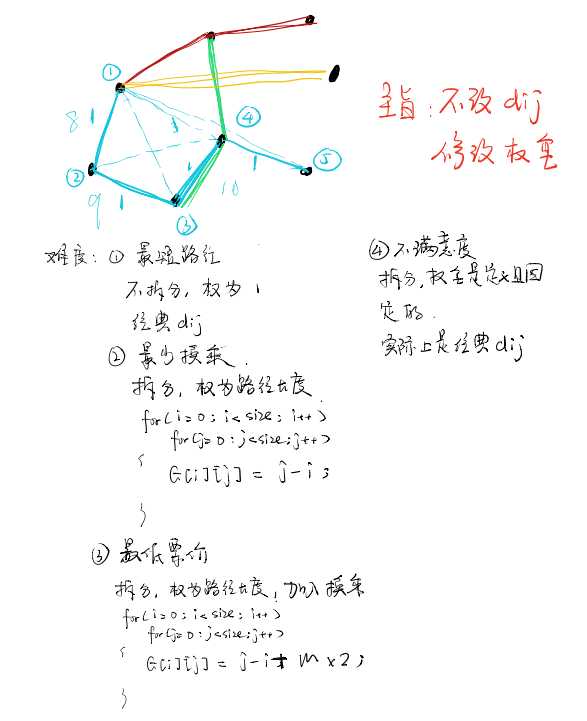 ①
8 1
3
④
②
9 1
1
10
1
⑤
③
主旨:不改dij
修改权重
难度:① 最短路径
不拆分,权为1
经典dij
② 最少换乘.
拆分,权为路径长度
for(i=0;i<size;i++)
for(j=0;j<size;j++)
{
G[i][j] = j-i;
}
③ 最低票价
拆分,权为路径长度,加入换乘
for(i=0;i<size;i++)
for(j=0;j<size;j++)
{
G[i][j] = j-i+m×2;
}
④不满意度
拆分,权重是定义且固
定的.
实际上是经典dij